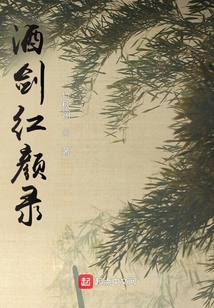 酒剑红颜录
著
起点中文网